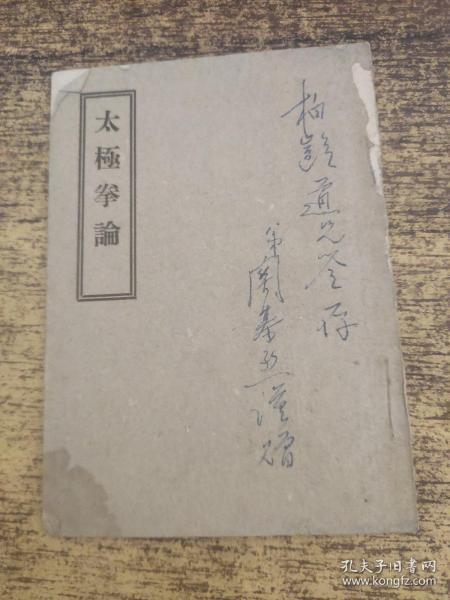 柏道兄存
弟謹贈
太極拳論
孔夫子旧书网
www.kongfz.com